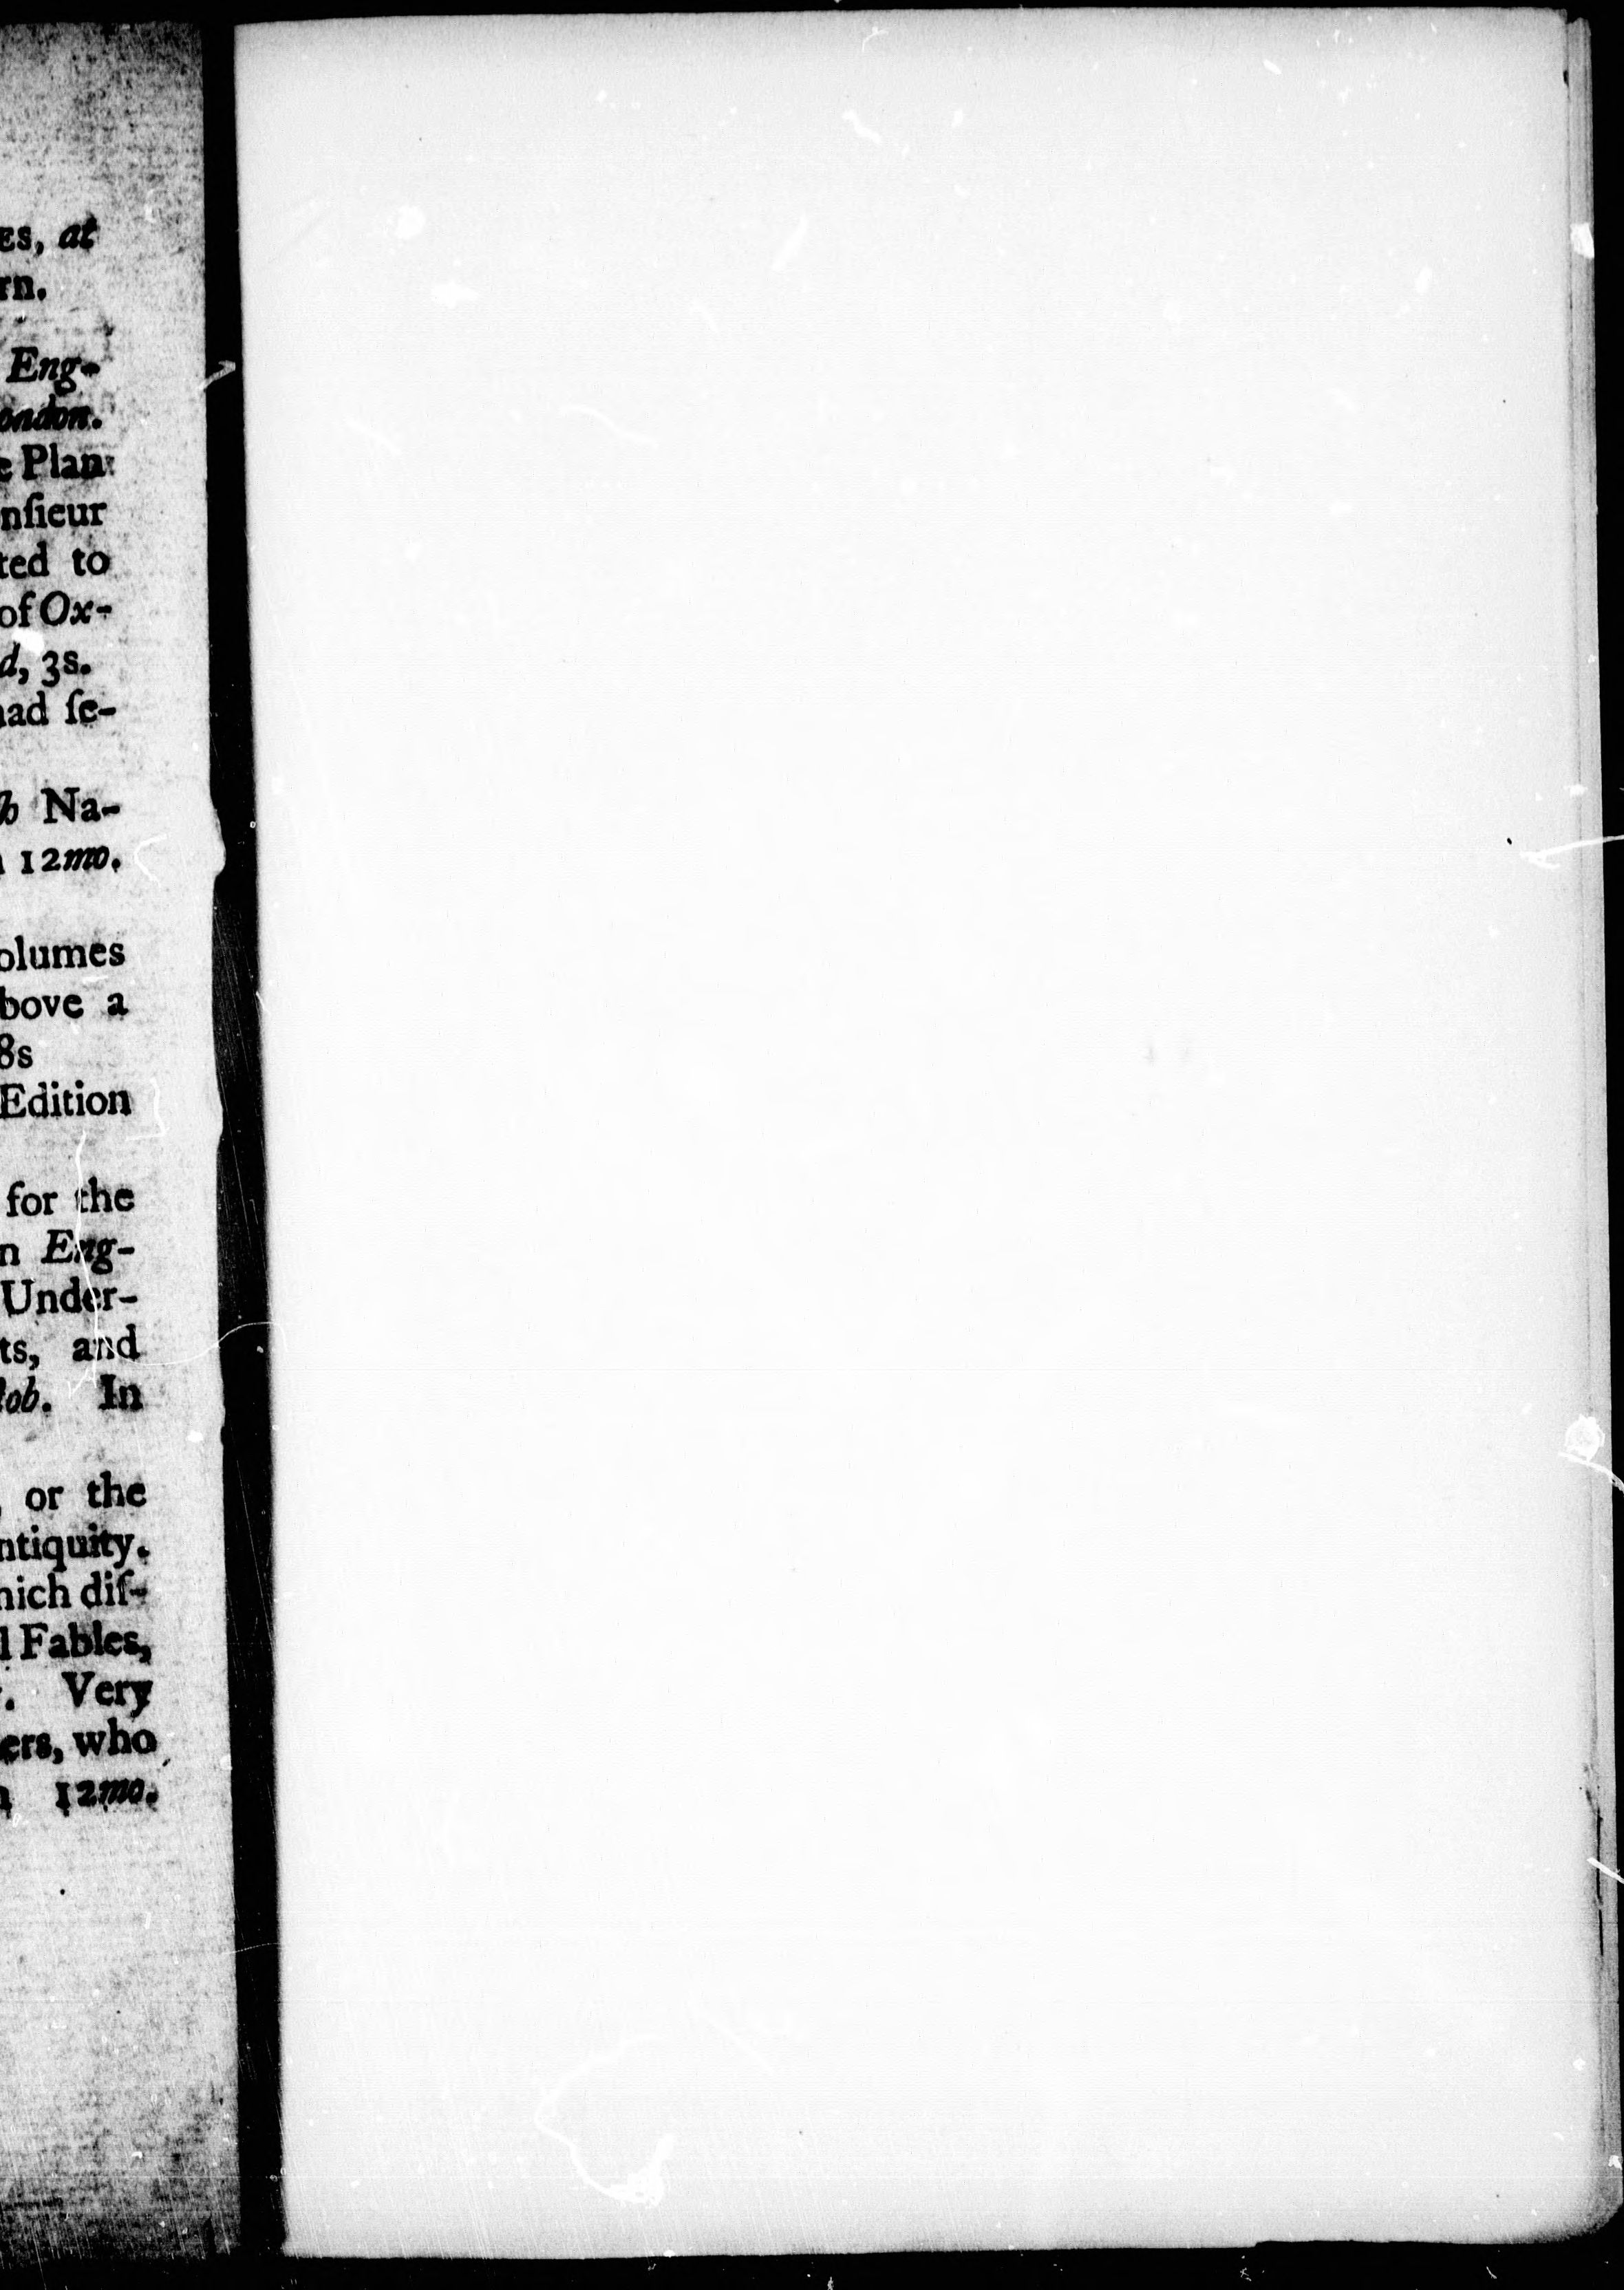 ES, at
rn.
Eng-
ondon.
e Plan
nſieur
ted to
of Ox-
d, 3s.
had ſe-
ſh Na-
12mo.
olumes
bove a
8s
Edition
for the
n Eng-
Under-
ts, and
Job. In
or the
ntiquity.
hich diſ-
l Fables,
. Very
ers, who
12mo.